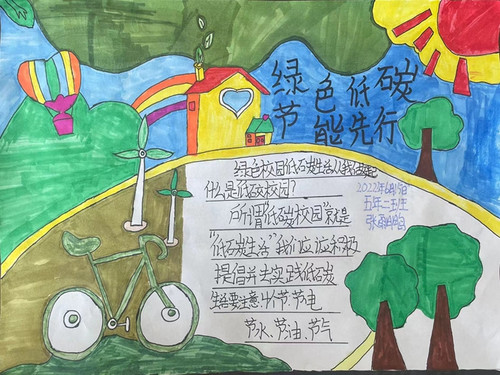 绿色低碳
节能先行
绿色校园低碳生活从我做起
什么是低碳校园?
所谓"低碳校园"就是
"低碳生活"我们应该积极
提倡并去实践低碳
生活要注意4个节节电
节水、节油、节气
2022年6月15日
五年二五生